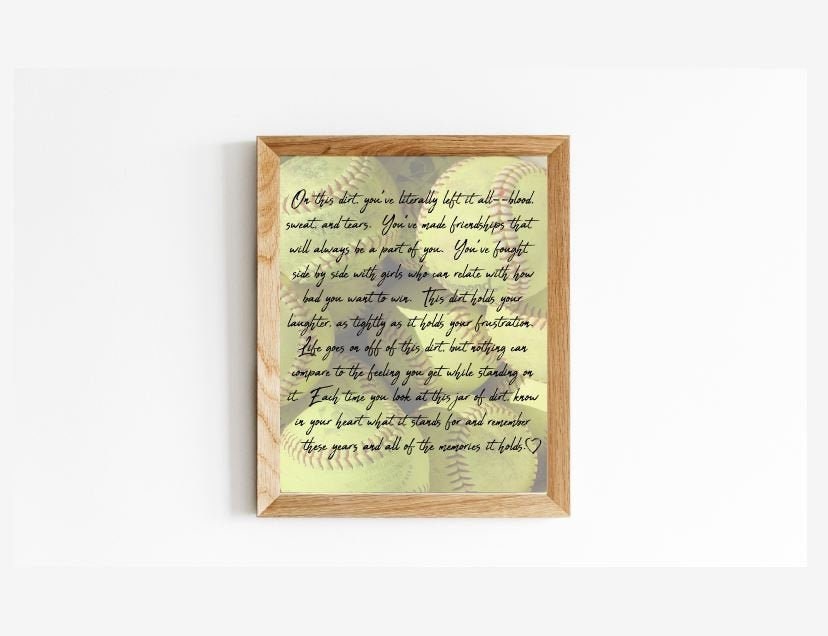 On this dirt, you've literally left it all--blood,
sweat, and tears. You've made friendships that
will always be a part of you. You've fought
side by side with girls who can relate with how
bad you want to win. This dirt holds your
laughter, as tightly as it holds your frustration.
Life goes on off of this dirt, but nothing can
compare to the feeling you get while standing on
it. Each time you look at this jar of dirt, know
in your heart what it stands for and remember
these years and all of the memories it holds.♡